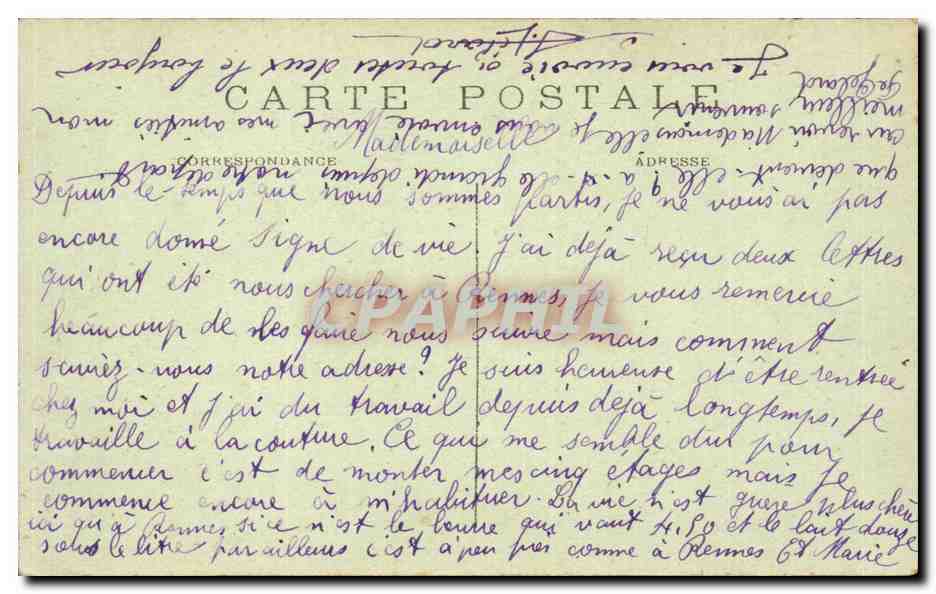 CARTE POSTALE
CORRESPONDANCE
ADRESSE
Mademoiselle
Depuis le temps que nous sommes partis, je ne vous ai pas
encore donné signe de vie. J'ai déjà reçu deux lettres
qui ont été nous chercher à Rennes, je vous remercie
beaucoup de les faire nous suivre mais comment
saviez-vous notre adresse? Je suis heureuse d'être rentrée
chez moi et j'ai du travail depuis déjà longtemps, je
travaille à la couture. Ce qui me semble dur pour
commencer c'est de monter mes cinq étages mais je
commence encore à m'habituer. La vie n'est guère plus chère
ici qu'à Rennes si ce n'est le beurre qui vaut 4.50 et le lait douze
sous le litre par ailleurs c'est à peu près comme à Rennes Et Marie
que devient-elle? a-t-elle grandi depuis notre départ.
au revoir Mademoiselle je vous envoie avec mes amitiés mon
meilleur souvenir
Je vous envoie à toutes deux le bonjour
CPAPHIL